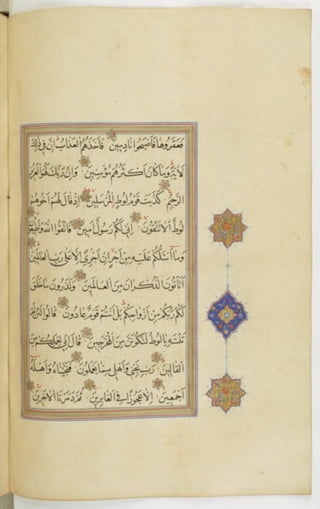 فعقروها فاصبحوا نادمين فاخذهم العذاب ان في ذلك
لاية وما كان اكثرهم مؤمنين وان ربك لهو العزيز
الرحيم كذبت قوم لوط المرسلين اذ قال لهم اخوهم
لوط الا تتقون اني لكم رسول امين فاتقوا الله واطيعون
وما اسئلكم عليه من اجر ان اجري الا على رب العالمين
اتاتون الذكران من العالمين وتذرون ما خلق
لكم ربكم من ازواجكم بل انتم قوم عادون قالوا لئن لم
تنته يا لوط لتكونن من المخرجين قال اني لعملكم من
القالين رب نجني واهلي مما يعملون فنجيناه واهله
اجمعين الا عجوزا في الغابرين ثم دمرنا الاخرين